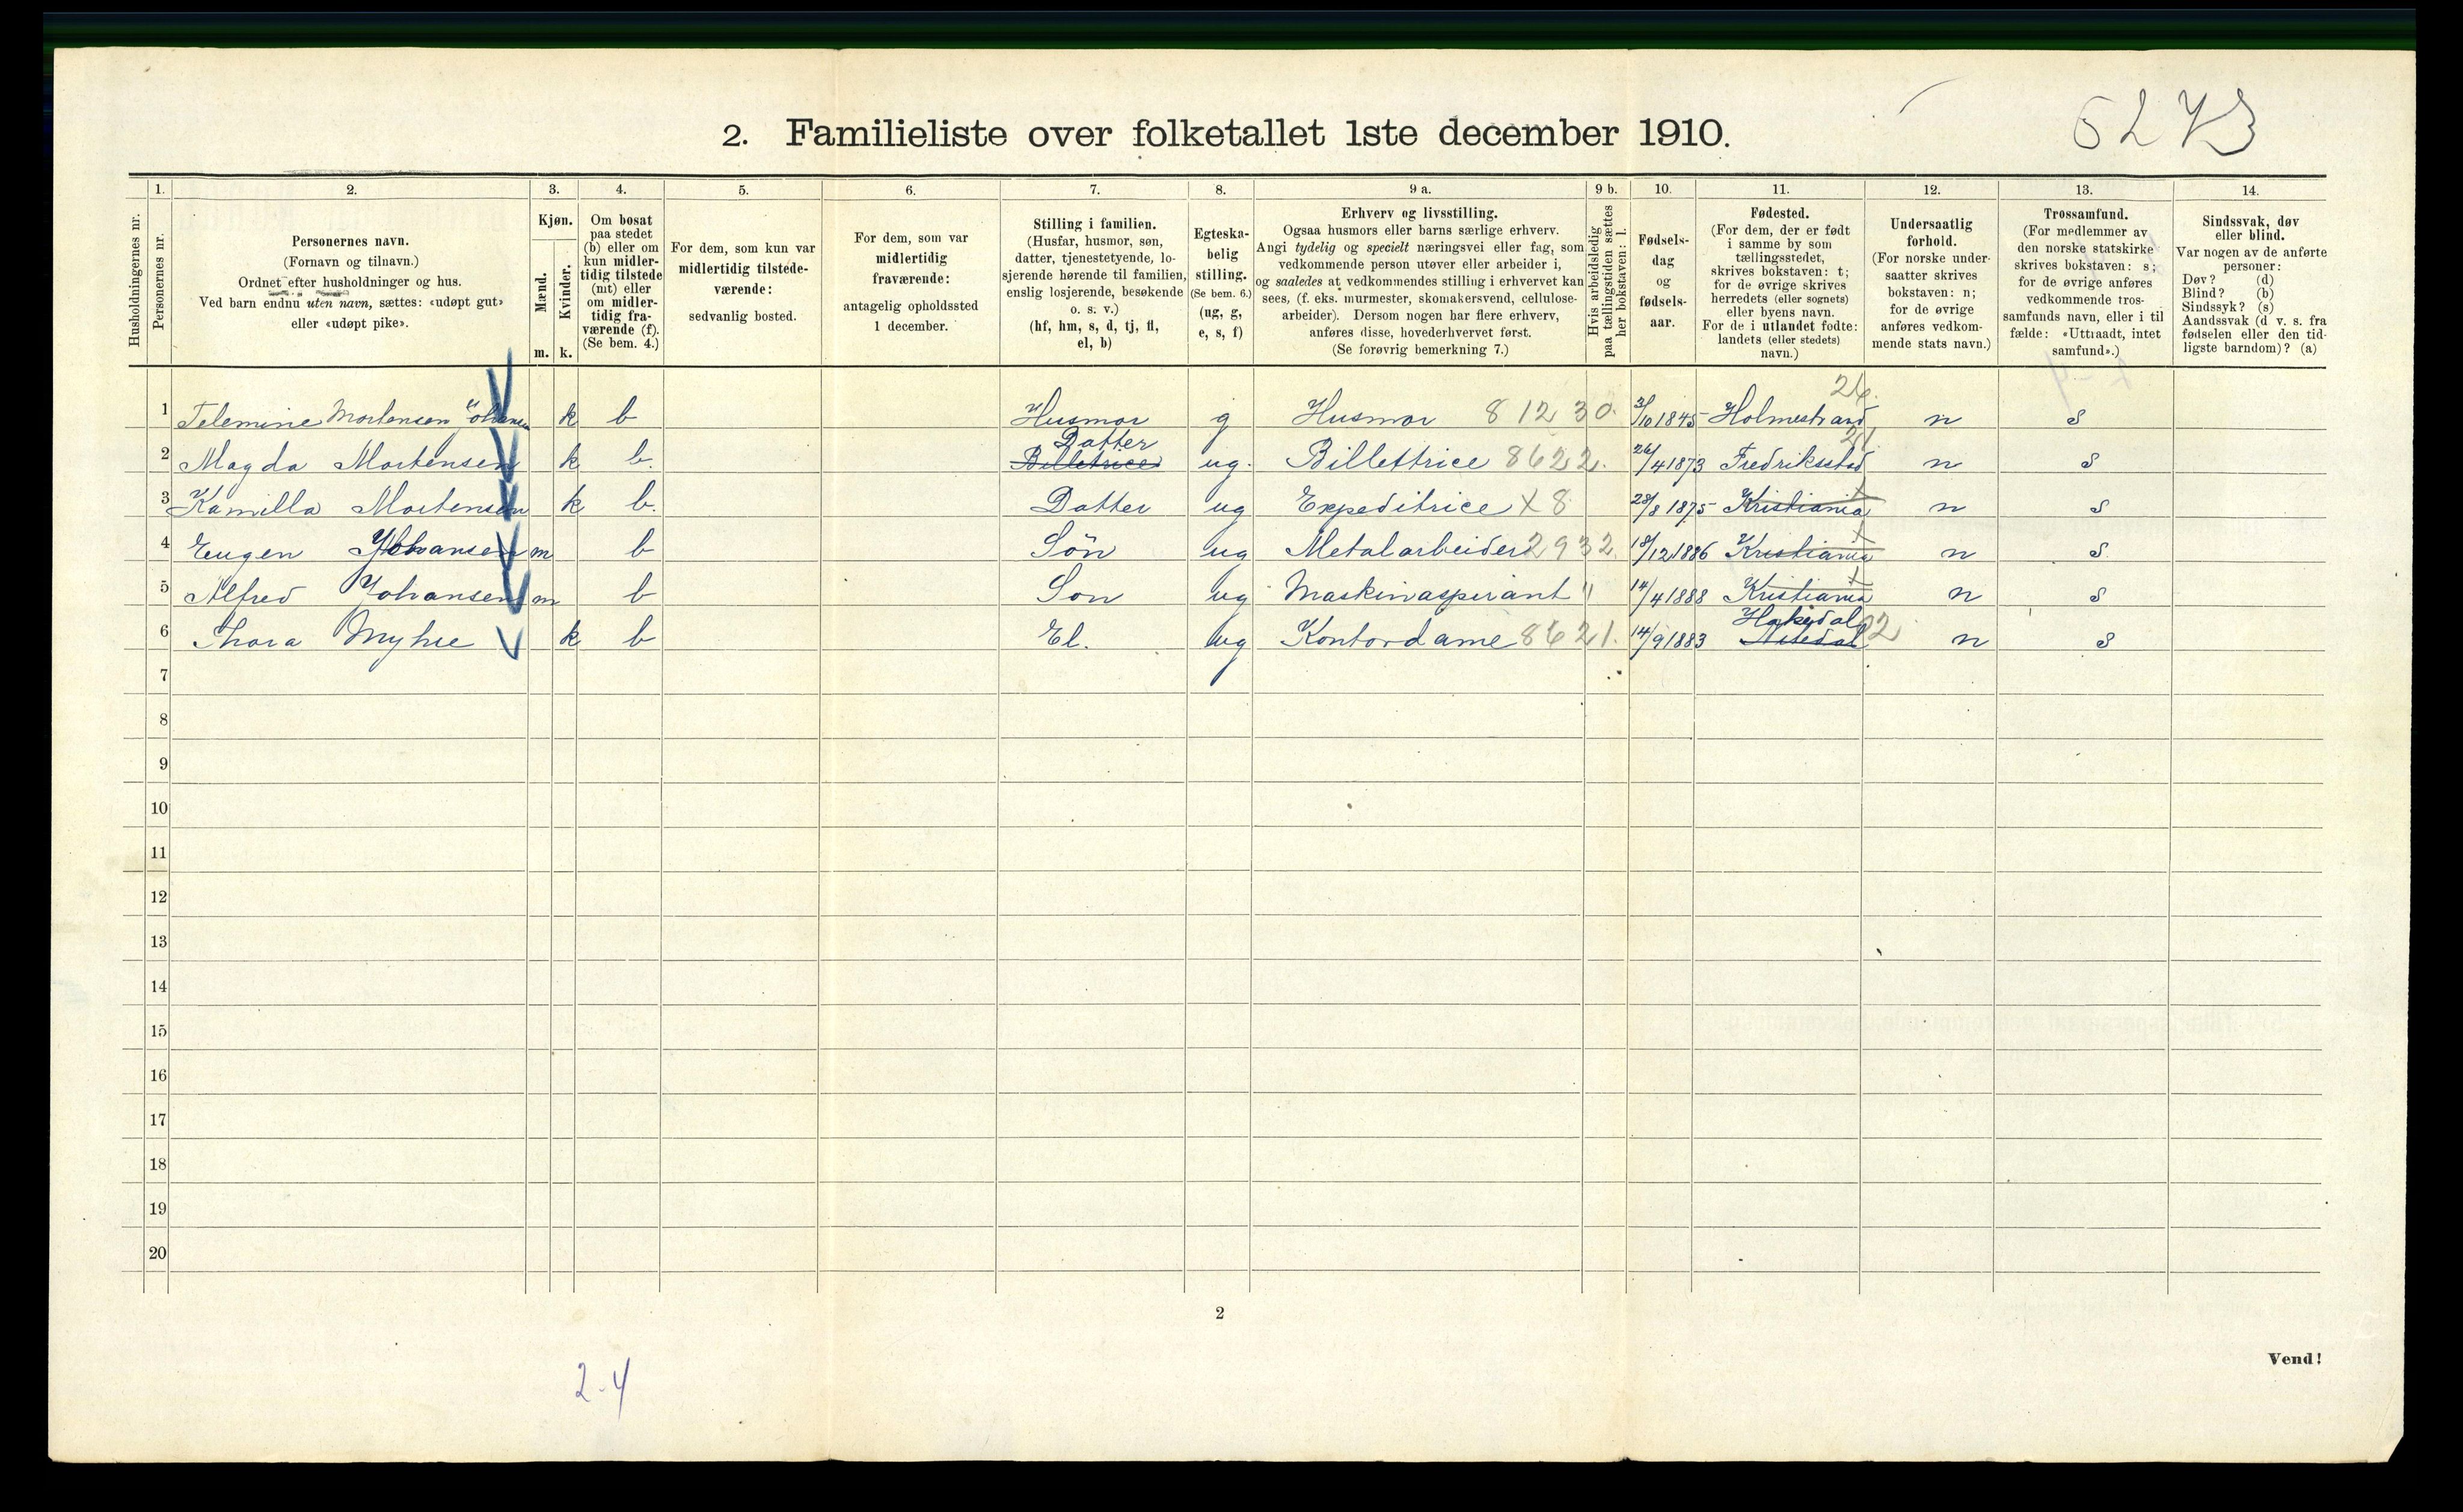 5273
2. Familieliste over folketallet 1ste december 1910.
Husholdningernes nr.
1. Personernes nr.
2. Personernes navn. (Fornavn og tilnavn.) Ordnet efter husholdninger og hus. Ved barn endnu uten navn, sættes: «udøpt gut» eller «udøpt pike».
3. Kjøn. Mænd. m. Kvinder. k.
4. Om bosat paa stedet (b) eller om kun midlertidig tilstede (mt) eller om midlertidig fraværende (f). (Se bem. 4.)
5. For dem, som kun var midlertidig tilstedeværende: sedvanlig bosted.
6. For dem, som var midlertidig fraværende: antagelig opholdssted 1 december.
7. Stilling i familien. (Husfar, husmor, søn, datter, tjenestetyende, losjerende hørende til familien, enslig losjerende, besøkende o. s. v.) (hf, hm, s, d, tj, fl, el, b)
8. Egteskabelig stilling. (Se bem. 6.) (ug, g, e, s, f)
9 a. Erhverv og livsstilling. Ogsaa husmors eller barns særlige erhverv. Angi tydelig og specielt næringsvei eller fag, som vedkommende person utøver eller arbeider i, og saaledes at vedkommendes stilling i erhvervet kan sees, (f. eks. murmester, skomakersvend, cellulosearbeider). Dersom nogen har flere erhverv, anføres disse, hovederhvervet først. (Se forøvrig bemerkning 7.)
9 b. Hvis arbeidsledig paa tællingstiden sættes her bokstaven: l.
10. Fødselsdag og fødselsaar.
11. Fødested. (For dem, der er født i samme by som tællingsstedet, skrives bokstaven: t; for de øvrige skrives herredets (eller sognets) eller byens navn. For de i utlandet fødte: landets (eller stedets) navn.)
12. Undersaatlig forhold. (For norske undersaatter skrives bokstaven: n; for de øvrige anføres vedkommende stats navn.)
13. Trossamfund. (For medlemmer av den norske statskirke skrives bokstaven: s; for de øvrige anføres vedkommende trossamfunds navn, eller i tilfælde: «Uttraadt, intet samfund».)
14. Sindssvak, døv eller blind. Var nogen av de anførte personer: Døv? (d) Blind? (b) Sindssyk? (s) Aandssvak (d v. s. fra fødselen eller den tidligste barndom)? (a)
1 Telemine Mortensen Johansen k b Husmor g Husmor 81230. 3/10 1845 Holmestrand 26. n s
2 Magda Mortensen k b. Billetrice Datter ug. Billettrice 8622. 26/4 1873 Fredriksstad 21. n s
3 Kamilla Mortensen k b. Datter ug Expeditrice X 8 28/8 1875 Kristiania t n s
4 Eugen Johansen m b Sön ug Metalarbeider 2932. 18/12 1886 Kristiania t n s.
5 Alfred Johansen m b Son ug Maskinaspirant " 14/4 1888 Kristiania t n s
6 Thora Myhre k b El. ug Kontordame 8621. 14/9 1883 Hakedal 02 n s
7
8
9
10
11
12
13
14
15
16
17
18
19
20
2
Vend!
2-4